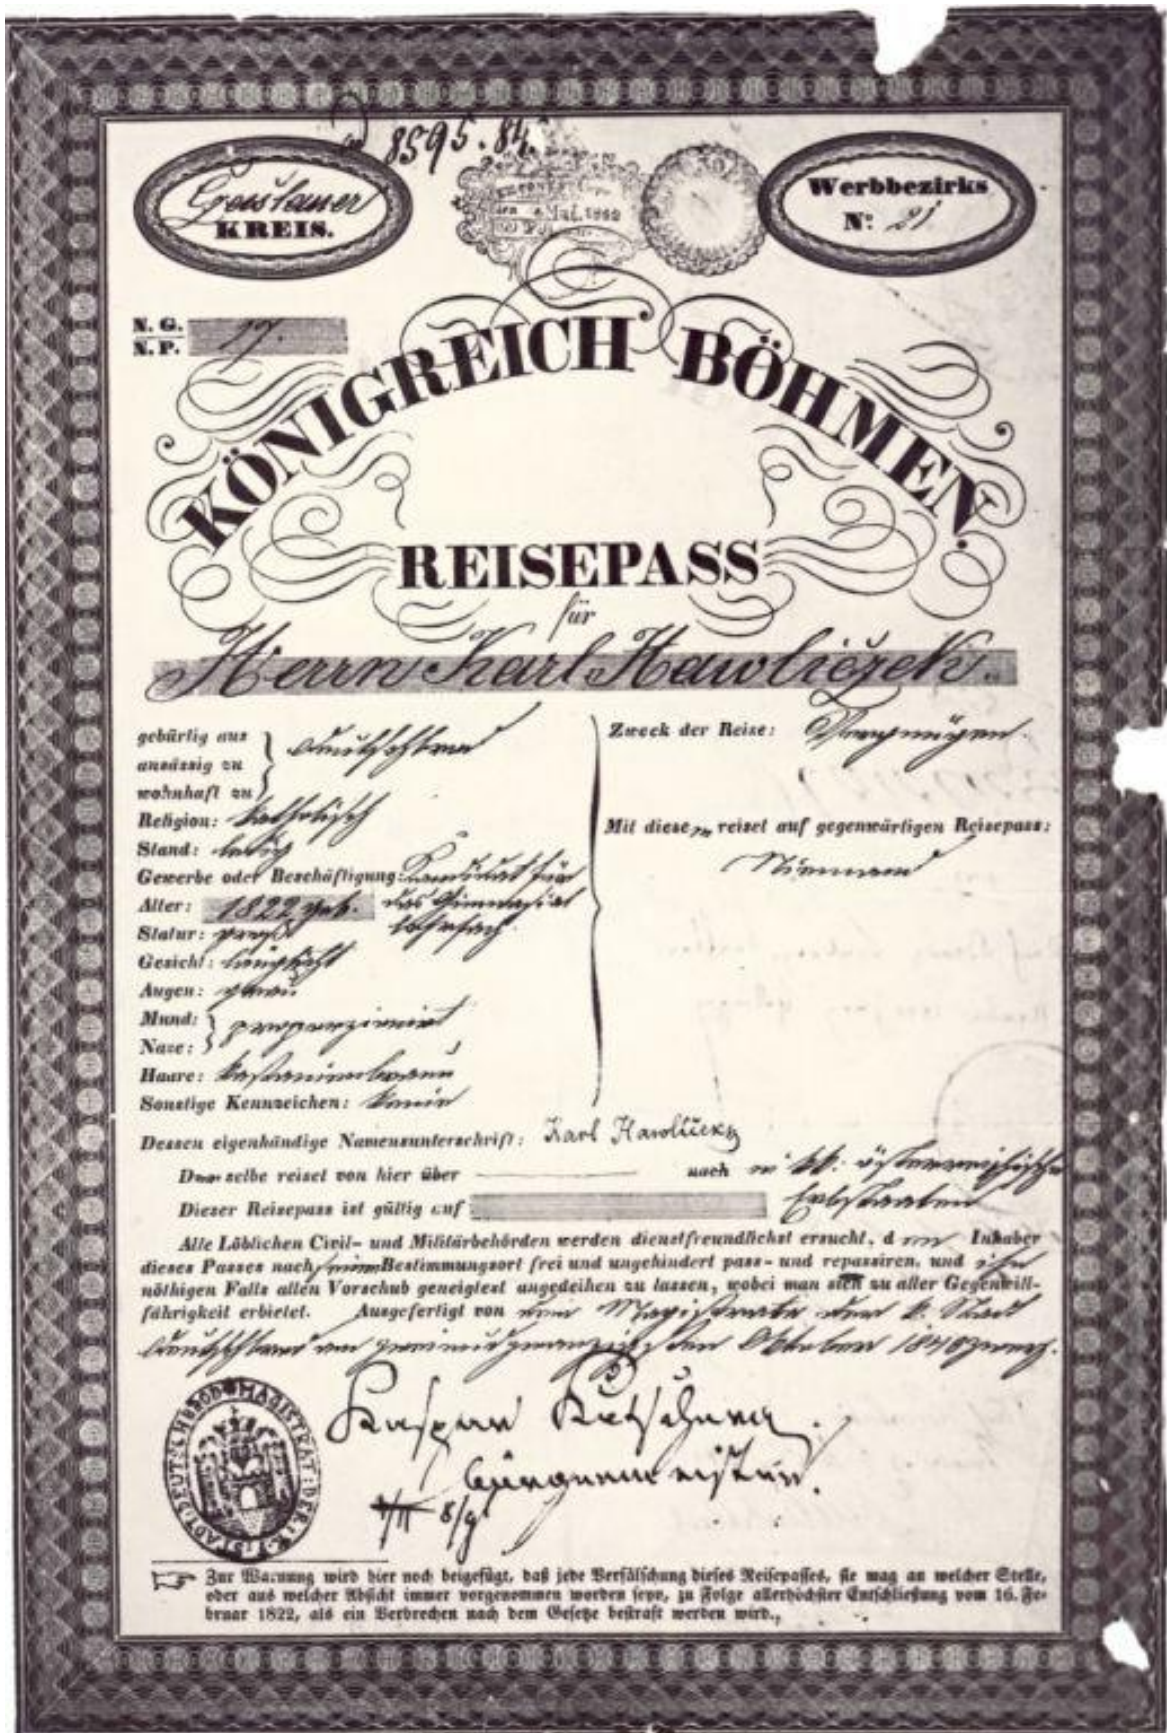 8595.84.
Czaslauer
KREIS.
Werbbezirks
No: 21
N. G.
N. P. 17.
KÖNIGREICH BÖHMEN.
REISEPASS
für
Herrn Karl Hawliczek.
gebürtig aus
ansässig zu
wohnhaft zu
Deutschbrod
Religion: katholisch
Stand: ledig
Gewerbe oder Beschäftigung: Kandidat für
das Gimnasial
Lehrfach.
Alter: 1822 geb.
Statur:
Gesicht: länglicht
Augen: grau
Mund:
Nase:
proporzionirt
Haare: kastanienbraun
Sonstige Kennzeichen: keine
Zweck der Reise: Vergnügen.
Mit diesem reiset auf gegenwärtigen Reisepass:
Niemand
Dessen eigenhändige Namensunterschrift: Karl Hawliczek
Derselbe reiset von hier über nach in kk. österreichische
Erbstaaten
Dieser Reisepass ist gültig auf
Alle Löblichen Civil- und Militärbehörden werden dienstfreundlichst ersucht, dem Inhaber
dieses Passes nach seinem Bestimmungsort frei und ungehindert pass- und repassiren, und ihm
nöthigen Falls allen Vorschub geneigtest angedeihen zu lassen, wobei man sich zu aller Gegenwill-
fährigkeit erbietet. Ausgefertigt von dem Magistrate der k. Stadt
Deutschbrod am zweiundzwanzigsten Oktober 1842
Bürgermeister.
8/9
MAGISTRAT DER K: STADT DEUTSCHBROD
Zur Warnung wird hier noch beigefügt, daß jede Verfälschung dieses Reisepasses, sie mag an welcher Stelle,
oder aus welcher Absicht immer vorgenommen worden seyn, zu Folge allerhöchster Entschließung vom 16. Fe-
bruar 1822, als ein Verbrechen nach dem Gesetze bestraft werden wird.